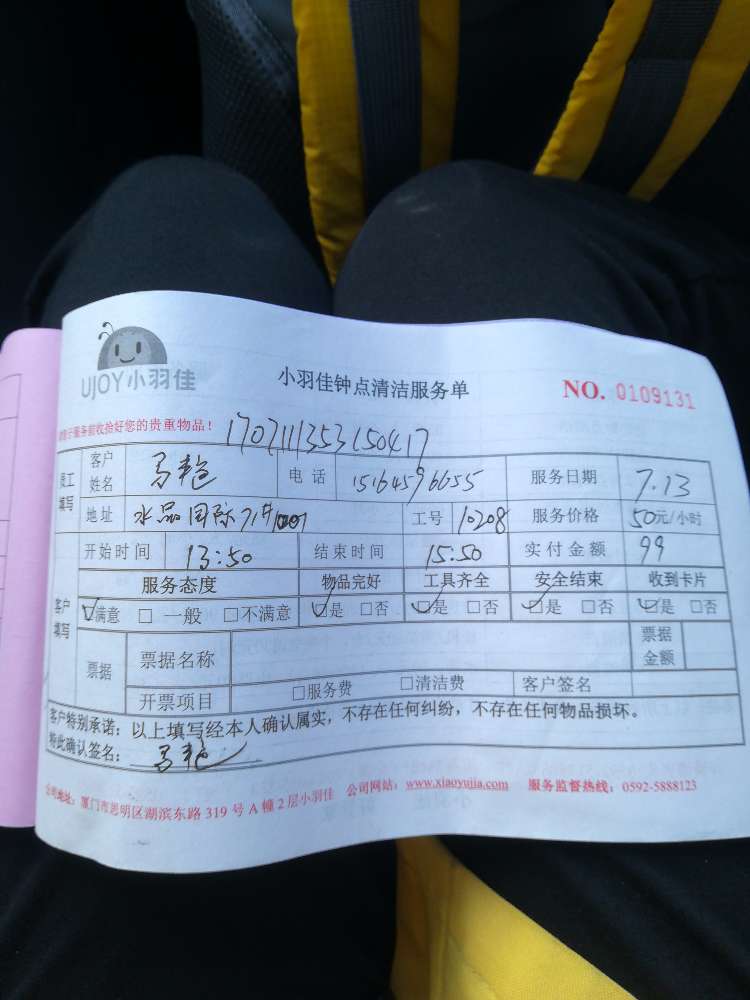 UJOY小羽佳
小羽佳钟点清洁服务单
NO. 0109131
服务前收拾好您的贵重物品！
1707111353150417
员工填写 客户姓名 马艳 电话 15164596655 服务日期 7.13
地址 水晶国际 工号 10208 服务价格 50元/小时
开始时间 13:50 结束时间 15:50 实付金额 99
客户填写 服务态度 物品完好 工具齐全 安全结束 收到卡片
☑满意 □一般 □不满意 ☑是 □否 ☑是 □否 ☑是 □否 ☑是 □否
票据 票据名称 票据金额
开票项目 □服务费 □清洁费 客户签名
客户特别承诺：以上填写经本人确认属实，不存在任何纠纷，不存在任何物品损坏。
特此确认签名：马艳
公司地址：厦门市思明区湖滨东路 319 号 A 幢 2 层小羽佳 公司网站：www.xiaoyujia.com 服务监督热线：0592-5888123